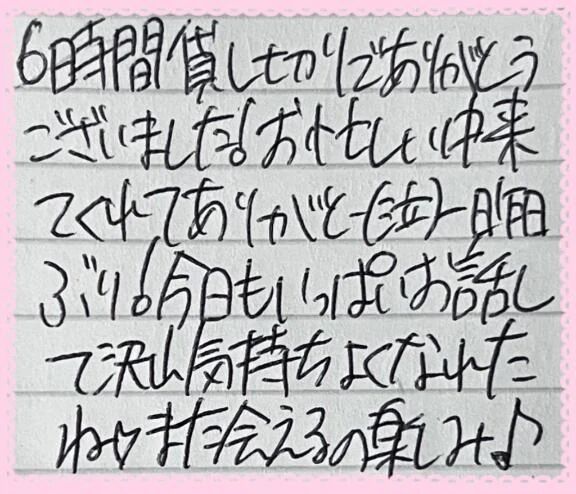 6時間貸し切りでありがとう
ございました!お忙しい中来
てくれてありがと~(泣)一週間
ぶり!今日もいっぱいお話し
て沢山気持ちよくなれた
ね♡また会えるの楽しみ♪